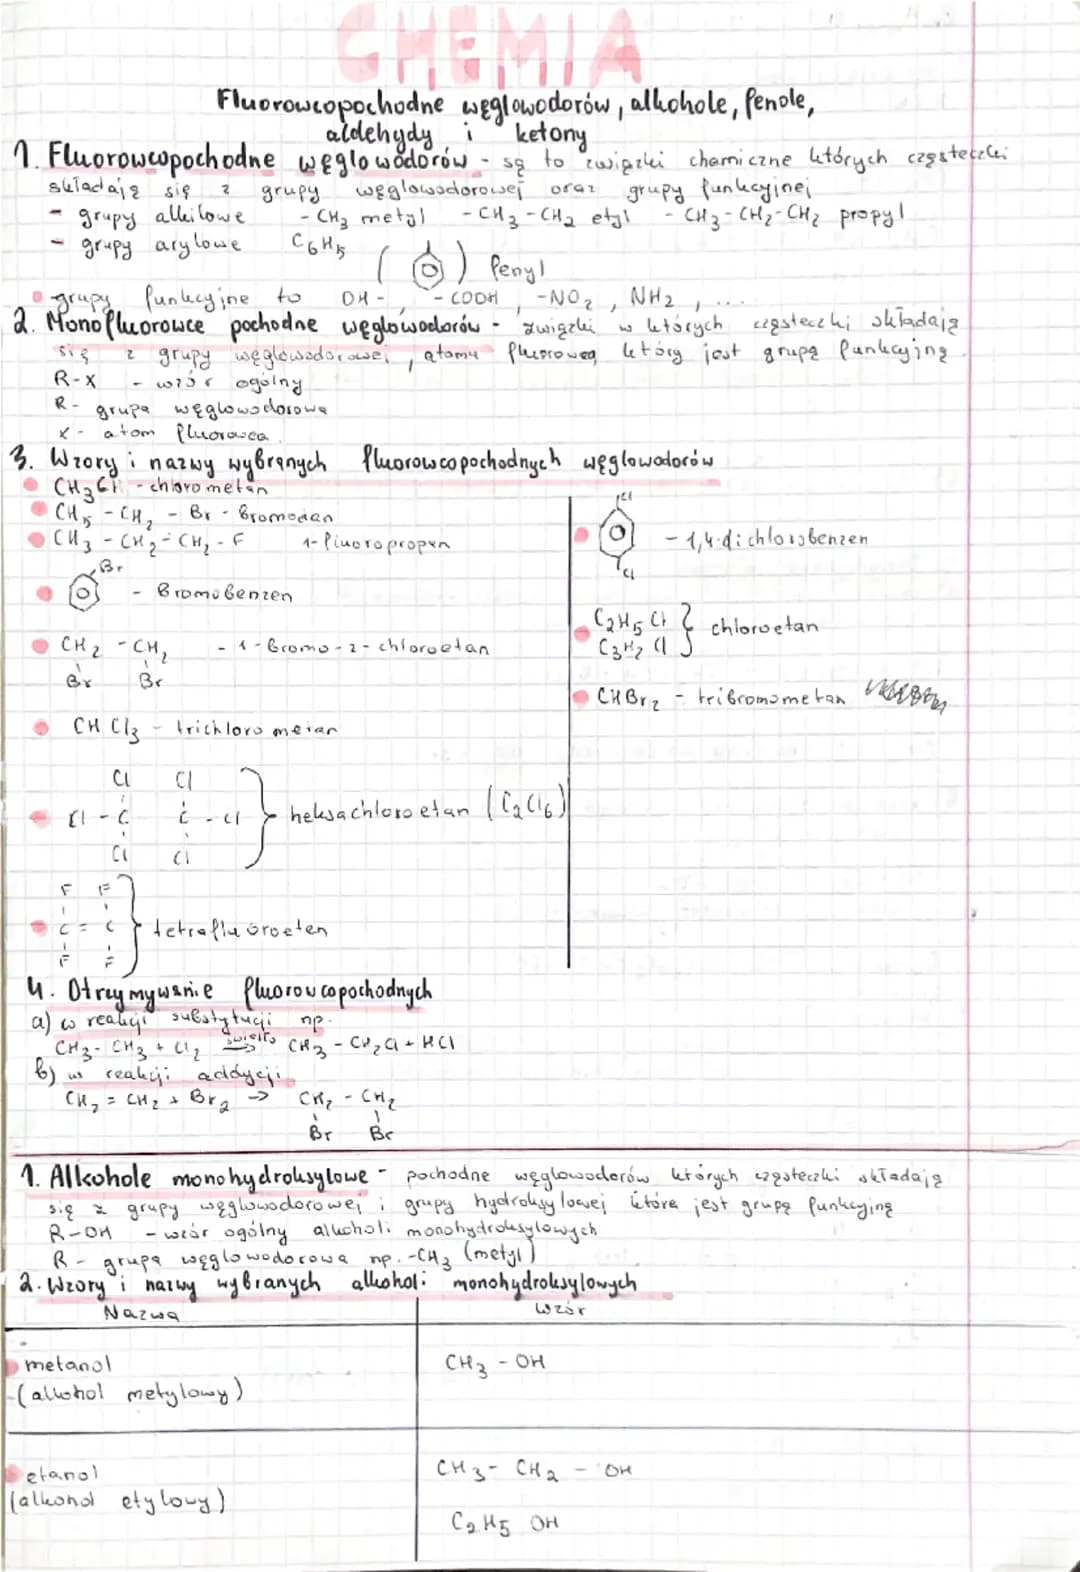 CHEMIA
Fluorowcopochodne węglowodorów, alkohole, fenole,
aldehydy i ketony
1. Fluorowcopochodne węglowodorów - są to związki chemiczne których cząsteczki
składają się z grupy węglowodorowej oraz grupy funkcyjnej
- grupy alkilowe - CH3 metyl - CH3 - CH2 etyl - CH3 - CH2 - CH2 propyl
- grupy arylowe C6H5 ( ) fenyl
grupy funkcyjne to OH - , - COOH , -NO2 , NH2 , ...
2. Monofluorowce pochodne węglowodorów - związki w których cząsteczki składają
się z grupy węglowodorowej, atomu fluorowca, który jest grupą funkcyjną
R-X - wzór ogólny
R- grupa węglowodorowa
X - atom fluorowca
3. Wzory i nazwy wybranych fluorowcopochodnych węglowodorów
CH3Cl - chlorometan
CH5 - CH2 - Br - Bromoetan
CH3 - CH2 - CH2 - F 1-fluoropropan
Br
- Bromobenzen
CH2 - CH2 - 1-Bromo-2-chloroetan
Br Br
CHCl3 - trichlorometan
Cl Cl
Cl - C C - Cl } heksachloroetan (C2Cl6)
Cl Cl
F F
C = C } tetrafluoroeten
F F
Cl
- 1,4-dichlorobenzen
Cl
C2H5Cl } chloroetan
C3H2Cl
CHBr2 - tribromometan
4. Otrzymywanie fluorowcopochodnych
a) w reakcji substytucji np.
CH3 - CH3 + Cl2 światło → CH3 - CH2Cl + HCl
b) w reakcji addycji
CH2 = CH2 + Br2 → CH2 - CH2
Br Br
1. Alkohole monohydroksylowe - pochodne węglowodorów których cząsteczki składają
się z grupy węglowodorowej i grupy hydroksylowej która jest grupą funkcyjną
R-OH - wzór ogólny alkoholi monohydroksylowych
R - grupa węglowodorowa np. -CH3 (metyl)
2. Wzory i nazwy wybranych alkoholi monohydroksylowych
Nazwa wzór
metanol CH3 - OH
(alkohol metylowy)
etanol CH3 - CH2 - OH
(alkohol etylowy)
C2H5 OH